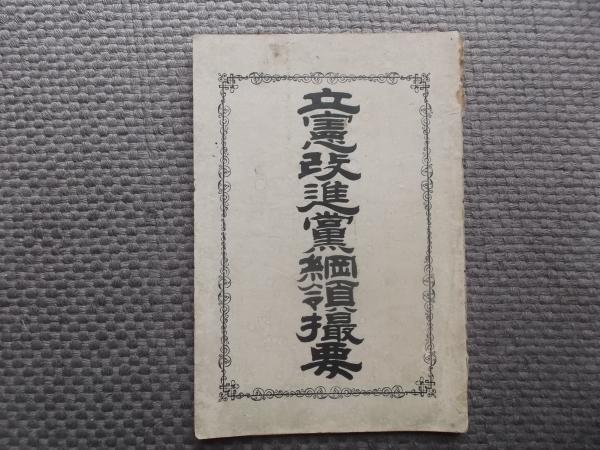 立憲改進黨綱領撮要